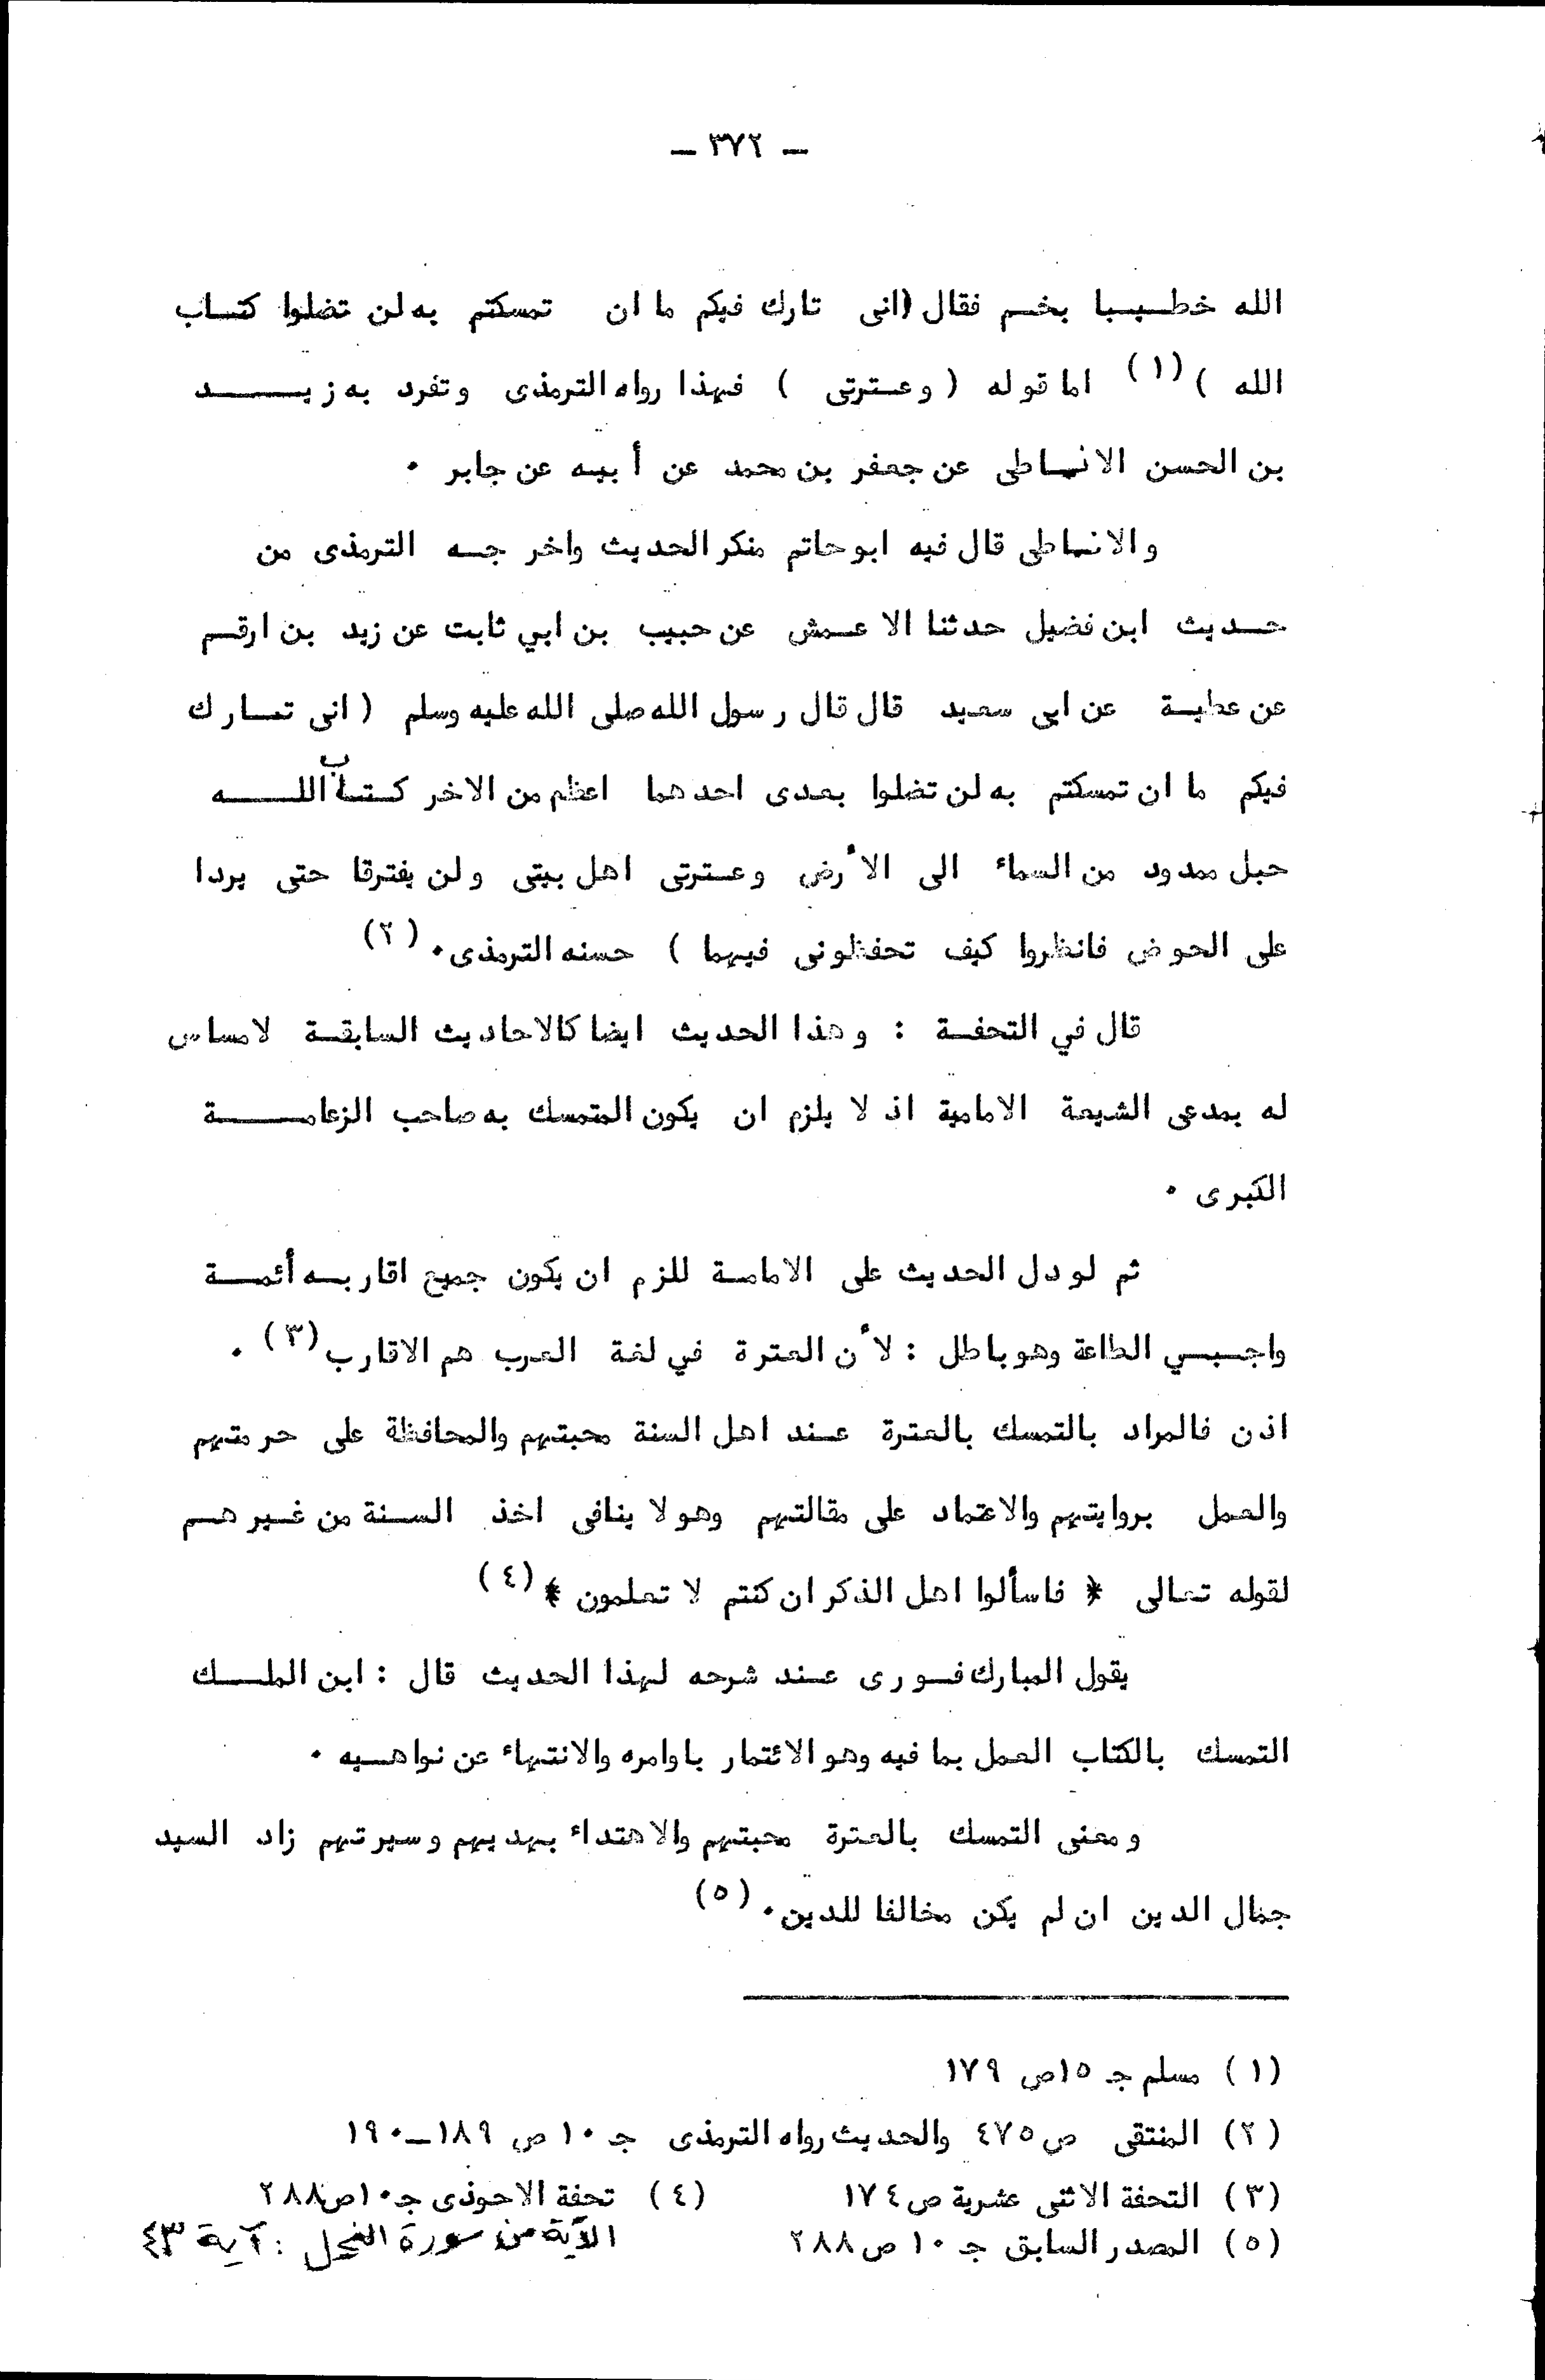 ـ ٣٧٢ ـ
الله خطيبا بخم فقال (انى تارك فيكم ما ان تمسكتم به لن تضلوا كتاب
الله ) (١) اما قوله ( وعترتى ) فهذا رواه الترمذى وتفرد به زيد
بن الحسن الانماطى عن جعفر بن محمد عن أبيه عن جابر ٠
والانماطى قال فيه ابو حاتم منكر الحديث واخرجه الترمذى من
حديث ابن فضيل حدثنا الاعمش عن حبيب بن ابي ثابت عن زيد بن ارقم
عن عطية عن ابى سعيد قال قال رسول الله صلى الله عليه وسلم ( انى تارك
فيكم ما ان تمسكتم به لن تضلوا بعدى احدهما اعظم من الاخر كتاب الله
حبل ممدود من السماء الى الأرض وعترتى اهل بيتى ولن يفترقا حتى يردا
على الحوض فانظروا كيف تحفظونى فيهما ) حسنه الترمذى٠ (٢)
قال في التحفة : وهذا الحديث ايضا كالاحاديث السابقة لامساس
له بمدعى الشيعة الامامية اذ لا يلزم ان يكون المتمسك به صاحب الزعامة
الكبرى ٠
ثم لو دل الحديث على الامامة للزم ان يكون جميع اقاربه أئمة
واجبي الطاعة وهو باطل : لأن العترة في لغة العرب هم الاقارب (٣) ٠
اذن فالمراد بالتمسك بالعترة عند اهل السنة محبتهم والمحافظة على حرمتهم
والعمل بروايتهم والاعتماد على مقالتهم وهو لا ينافى اخذ السنة من غيرهم
لقوله تعالى * فاسألوا اهل الذكر ان كنتم لا تعلمون * (٤)
يقول المباركفورى عند شرحه لهذا الحديث قال : ابن الملك
التمسك بالكتاب العمل بما فيه وهو الائتمار باوامره والانتهاء عن نواهيه ٠
ومعنى التمسك بالعترة محبتهم والاهتداء بهديهم وسيرتهم زاد السيد
جمال الدين ان لم يكن مخالفا للدين٠ (٥)
(١) مسلم جـ ١٥ص ١٧٩
(٢) المنتقى ص ٤٧٥ والحديث رواه الترمذى جـ ١٠ ص ١٨٩ـ١٩٠
(٣) التحفة الاثنى عشرية ص ١٧٤ (٤) تحفة الاحوذى جـ١٠ص٢٨٨
الآية من سورة النحل : آية ٤٣
(٥) المصدر السابق جـ ١٠ ص ٢٨٨